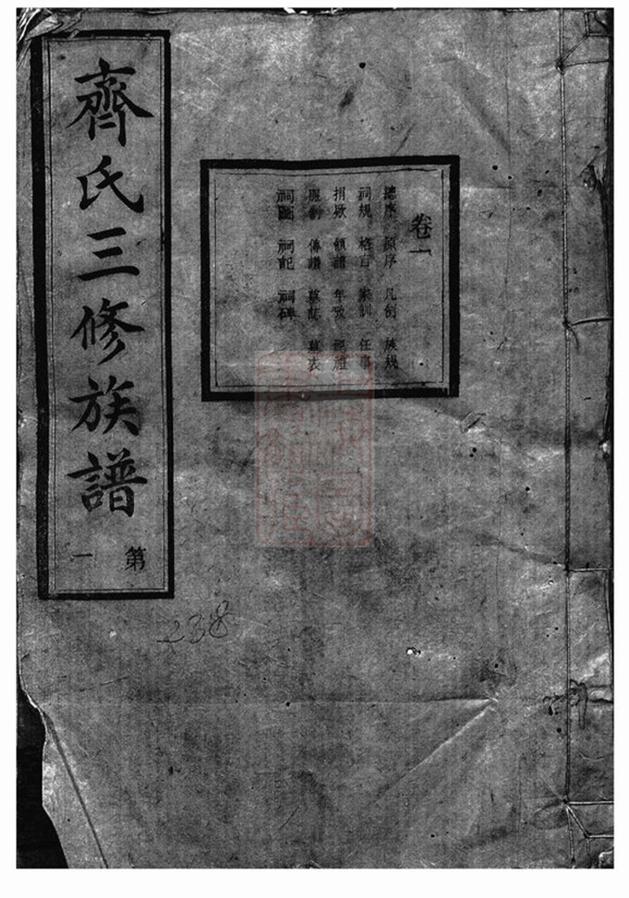 齊氏三修族譜
第一
卷一
總序 原序 凡例 族規
祠規 格言 家訓 任事
捐欵 領譜 年號
服制 傳讃 墓誌 墓表
祠圖 祠記 祠碑
238